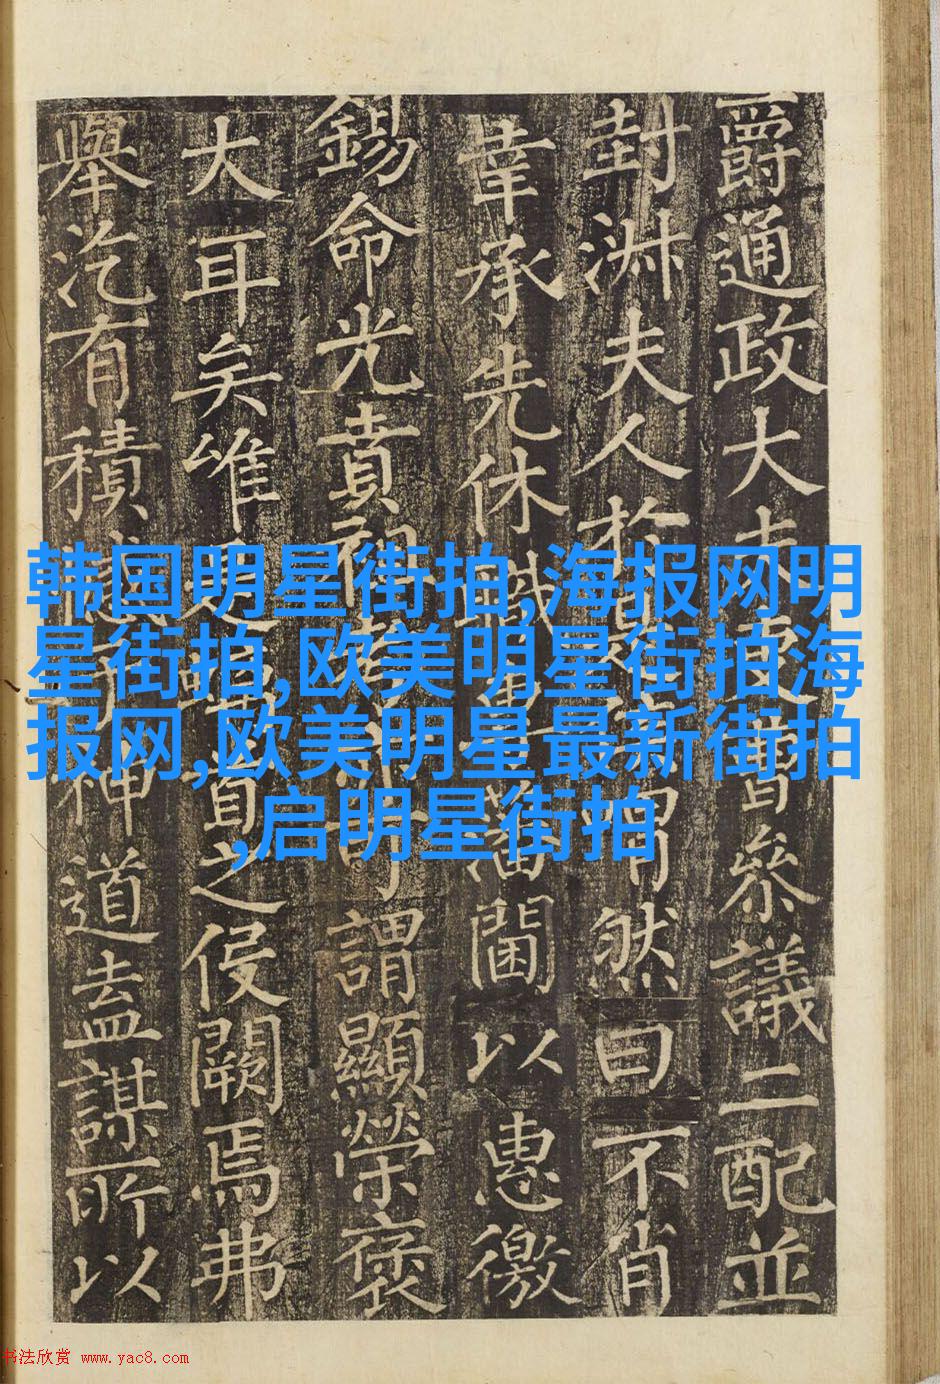 爵通政大夫吏曹參議二配並
封淑夫人於是喟然曰不肖
幸承先休職藩閫以惠徼
錫命光賁可謂顯榮褒
大耳矣唯是首之侵闕焉弗
舉汔有積神道盍謀所以
韩国明星街拍,海报网明
星街拍,欧美明星街拍海
报网,欧美明星最新街拍
,启明星街拍
书法欣赏 www.yac8.com